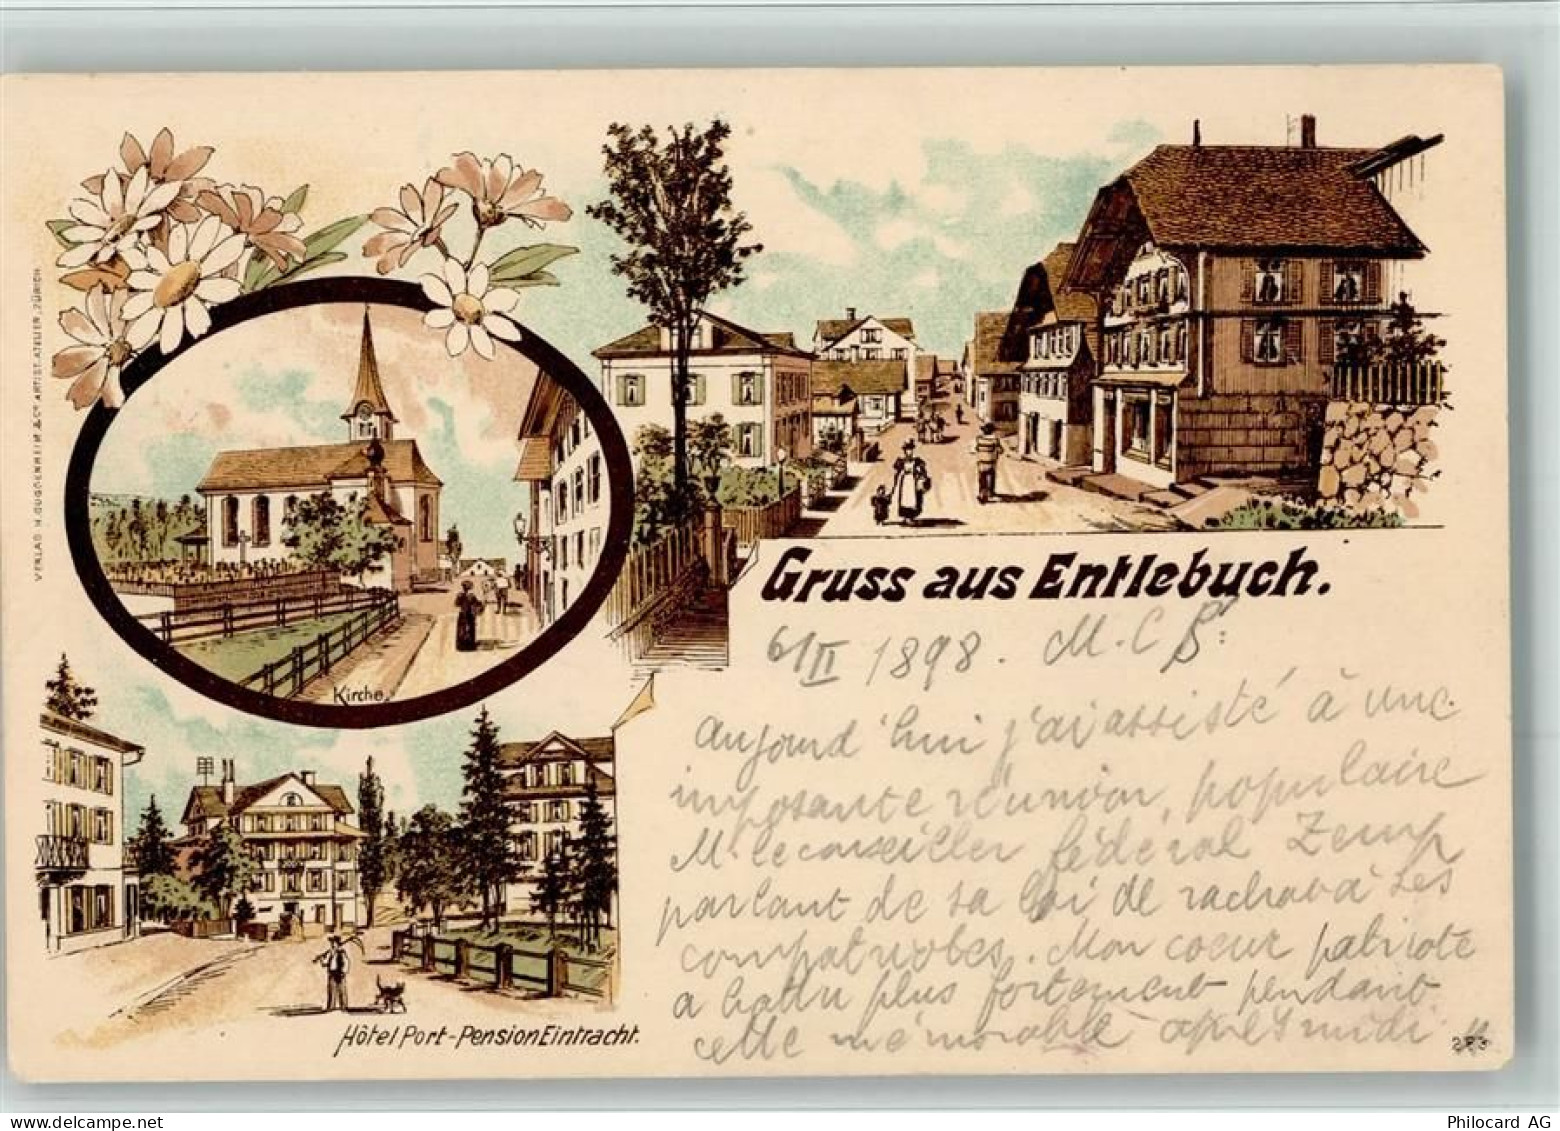 VERLAG H. GUGGENHEIM & Co ARTIST. ATELIER, ZÜRICH
Kirche.
Gruss aus Entlebuch.
6/II 1898. M. C
Aujourd'hui j'ai assisté à une
imposante réunion, populaire
M. le conseiller fédéral Zemp
parlant de sa loi de rachat à ses
compatriotes. Mon coeur patriote
a battu plus fortement pendant
cette mémorable après midi
Hôtel Port-Pension Eintracht.
283
Philocard AG